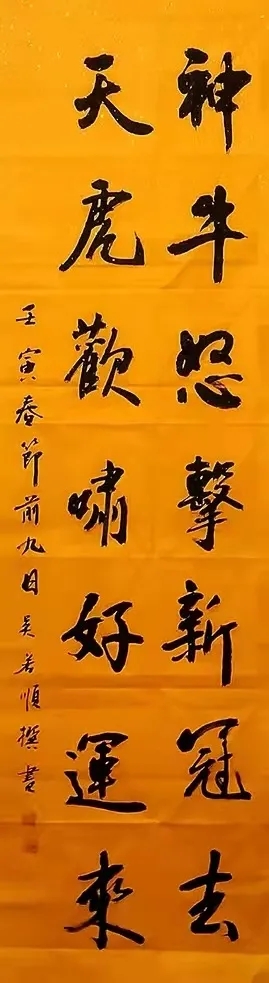 神牛怒擊新冠去
天虎歡嘯好運來
壬寅春節前九日吳善順撰書